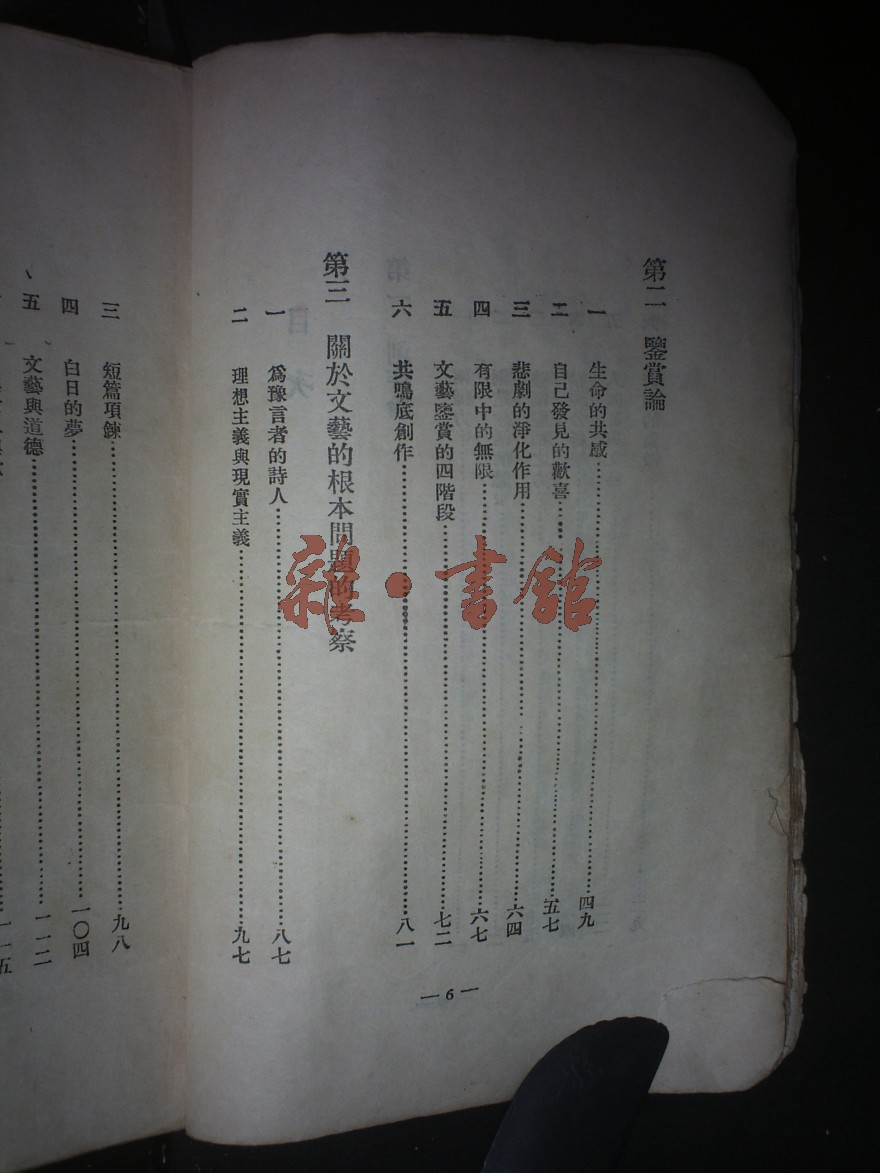 第二 鑒賞論
一 生命的共感……四九
二 自己發見的歡喜……五七
三 悲劇的淨化作用……六四
四 有限中的無限……六七
五 文藝鑒賞的四階段……七二
六 共鳴底創作……八一
第三 關於文藝的根本問題的考察
一 爲豫言者的詩人……八七
二 理想主義與現實主義……九七
— 6 —
三 短篇項鍊……九八
四 白日的夢……一〇四
五 文藝與道德……一一二
一一五
雜·書館